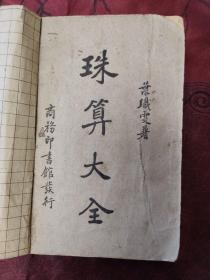 葉織雯著
珠算大全
商務印書館發行